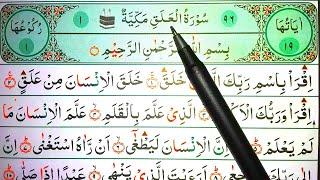 اٰيَاتُهَا ١٩ ٩٦ سُوْرَةُ الْعَلَقِ مَكِّيَّةٌ ١ رُكُوْعُهَا ١
بِسْمِ اللّٰهِ الرَّحْمٰنِ الرَّحِيْمِ
اِقْرَاْ بِاسْمِ رَبِّكَ الَّذِيْ خَلَقَ خَلَقَ الْاِنْسَانَ مِنْ عَلَقٍ
اِقْرَاْ وَرَبُّكَ الْاَكْرَمُ الَّذِيْ عَلَّمَ بِالْقَلَمِ عَلَّمَ الْاِنْسَانَ مَا
لَمْ يَعْلَمْ اِنَّ الْاِنْسَانَ لَيَطْغٰۤى اَنْ رَّاٰهُ اسْتَغْنٰى اِنَّ
اَرَءَيْتَ الَّذِيْ يَنْهٰى عَبْدًا اِذَا صَلّٰى